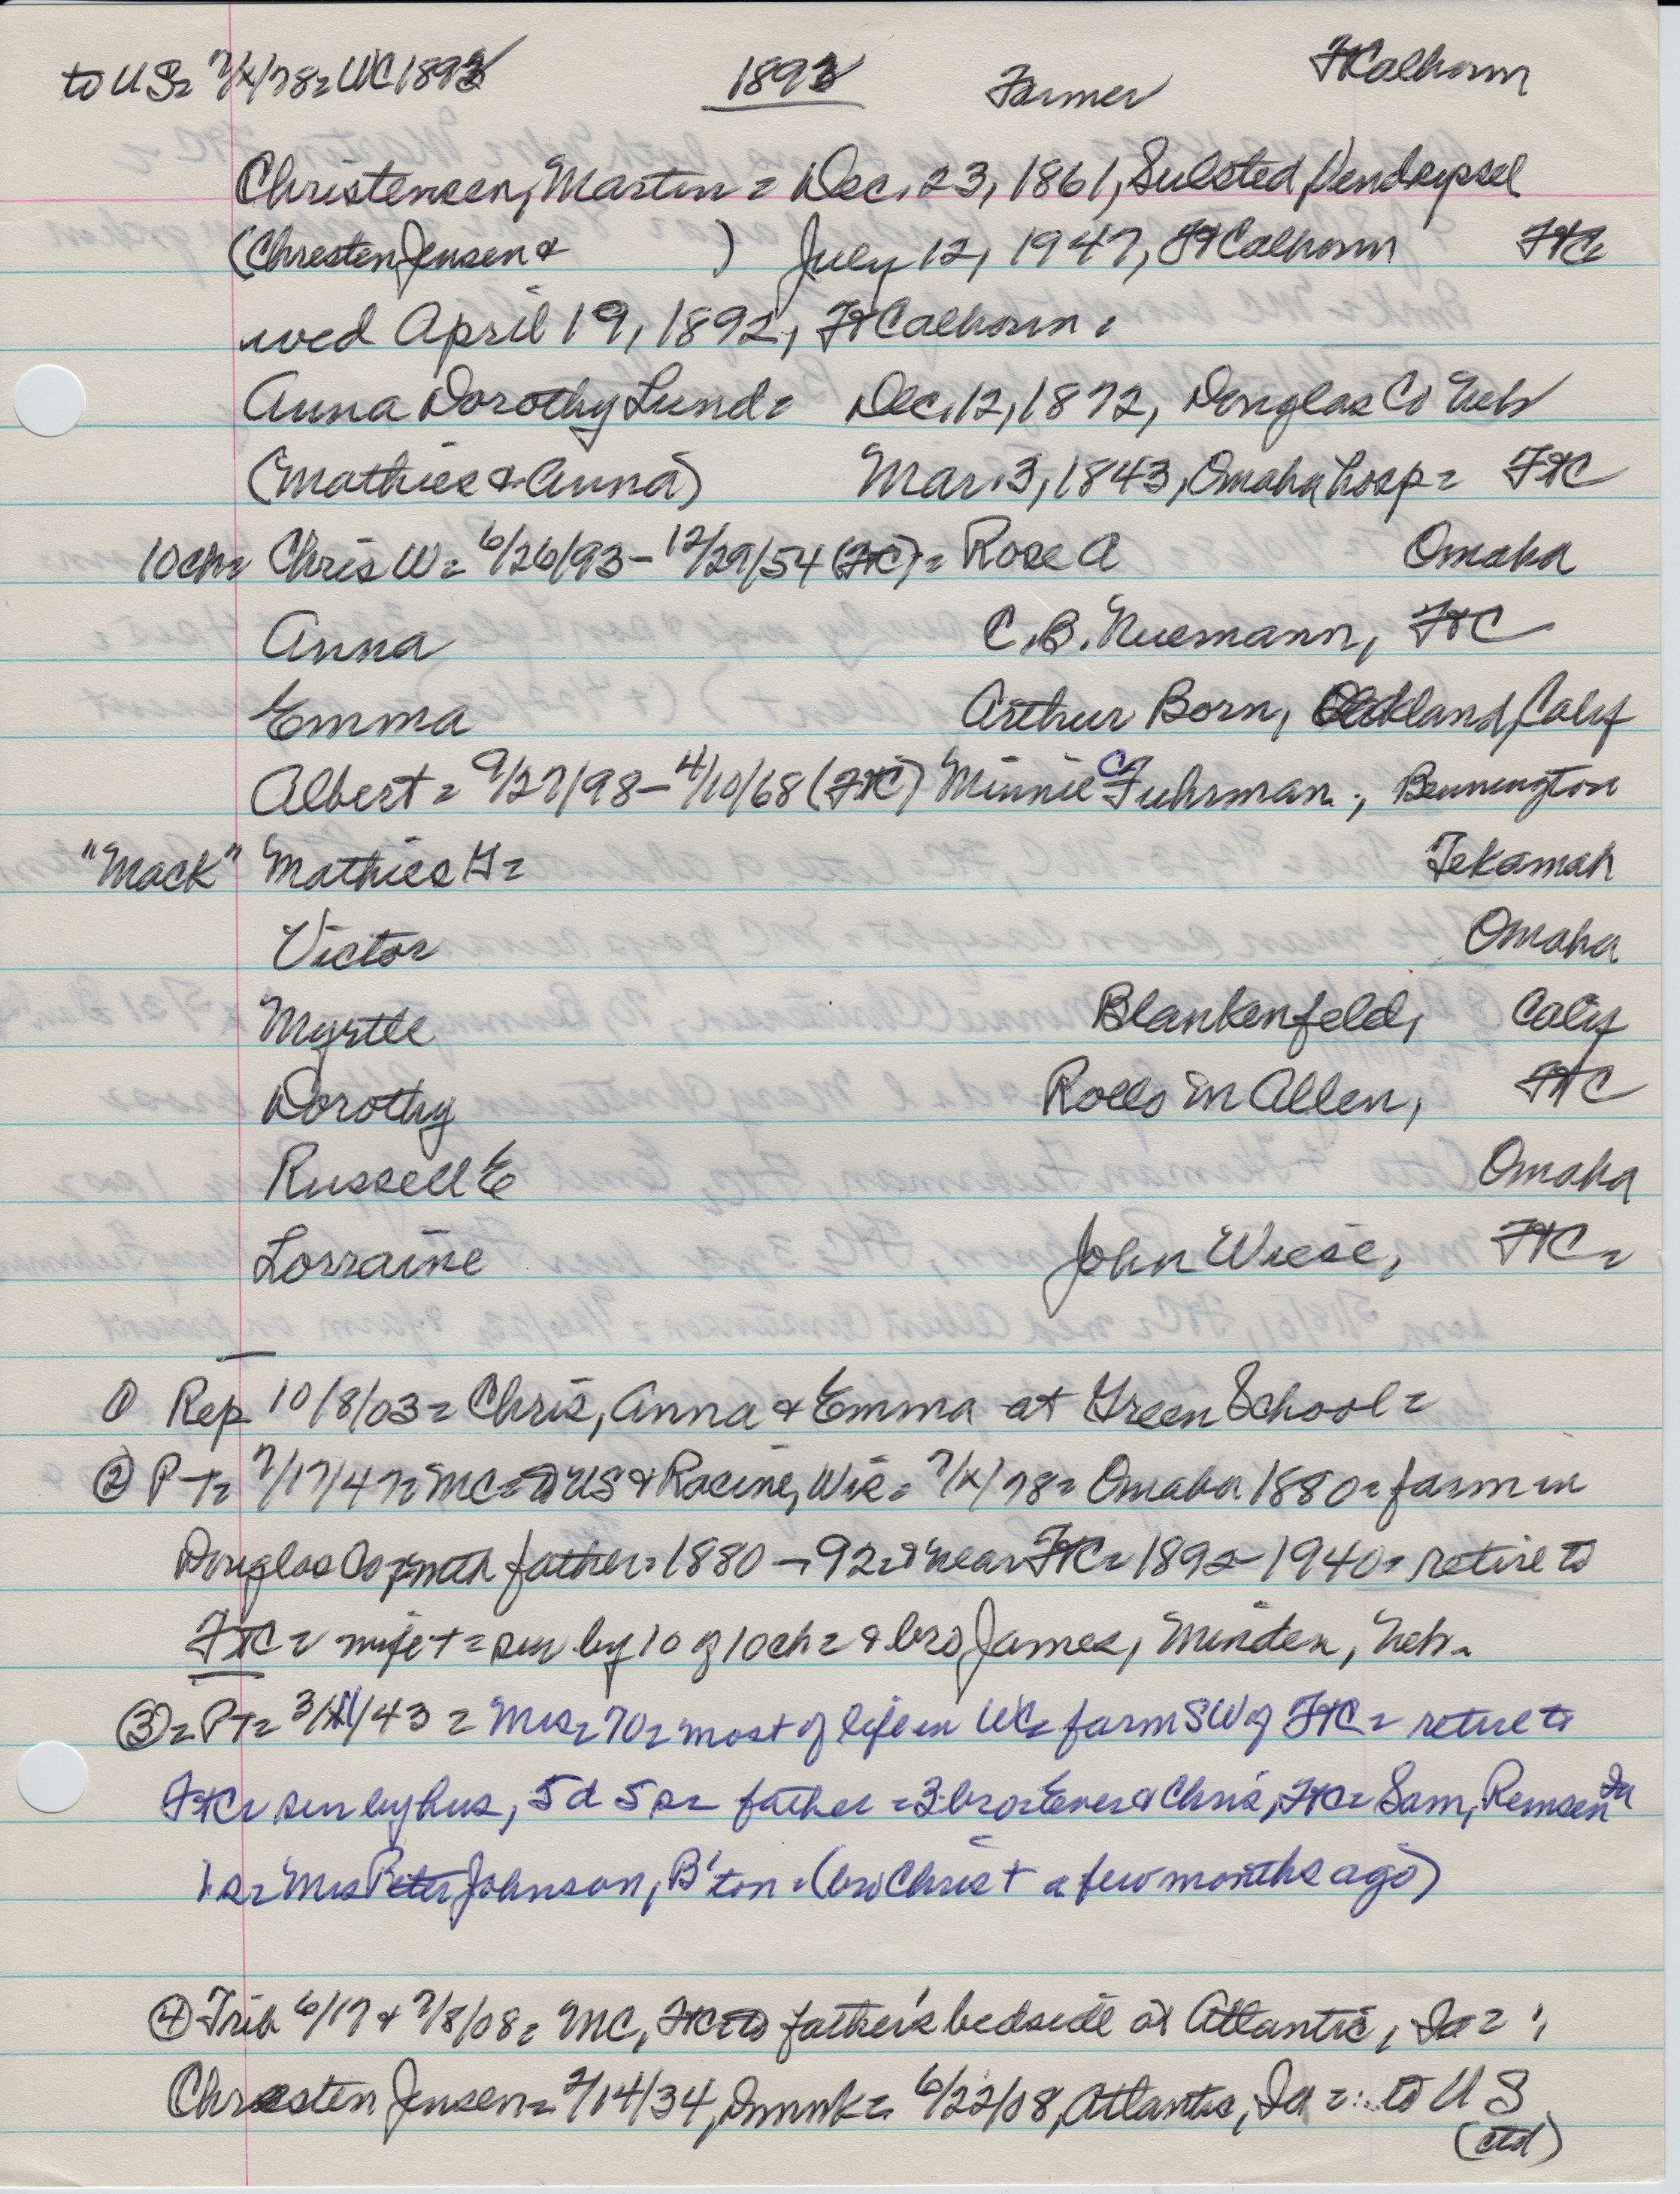 to US= 7/x/78= WC 1892 1892 Farmer FtCalhoun
Christensen, Martin = Dec. 23, 1861, Sulsted, Vendsyssel
(Chresten Jensen & ) July 12, 1947, FtCalhoun FtC=
wed April 19, 1892, FtCalhoun.
Anna Dorothy Lund= Dec. 12, 1872, Douglas Co Neb
(Mathies & Anna) Mar. 3, 1843, Omaha hosp= FtC
10ch= Chris W= 6/26/93 - 12/29/54 (FtC)= Rose A Omaha
Anna C.B. Nuemann, FtC
Emma Arthur Born, Oakland, Calif
Albert = 9/27/98 - 4/10/68 (FtC) Minnie C Fuhrman ; Bennington
"Mack" Mathies H= Tekamah
Victor Omaha
Myrtle Blankenfeld, Calif
Dorothy Rollo M Allen, FtC
Russell E Omaha
Lorraine John Wiese, FtC=
① Rep 10/8/03= Chris, Anna & Emma at Green School=
② PT= 7/17/47= MC= to US & Racine, Wis= 7/x/78= Omaha 1880= farm in
Douglas Co with father= 1880 - 92= & near FtC= 1892 - 1940= retire to
FtC= wife += sur by 10 of 10ch= & bro James, Minden, Neb.
③= PT= 3/11/43 = Mrs= 70= most of life in WC= farm SW of FtC= retire to
FtC= sur by hus, 5d 5s= father = 3 bro= Ever & Chris, FtC= Sam, Remsen Ia
1 s= Mrs Peter Johnson, B'ton. (bro Chris + a few months ago)
④ Trib 6/17 & 7/8/08= MC, FtC= to father's bedside at Atlantic, Ia= ;
Chresten Jensen= 2/14/34, Dnmk= 6/22/08, Atlantic, Ia =: to US
(ctd)